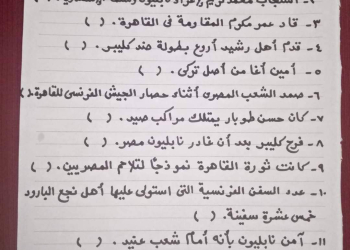 ٣- قاد عمر مكرم المقاومة فى القاهرة. ( )
٤- قدم أهل رشيد أروع بطولة ضد كليبر. ( )
٥- أمين أغا من أصل تركى. ( )
٦- صمد الشعب المصرى أثناء حصار الجيش الفرنسى للقاهرة.( )
٧- كان حسن طوبار يمتلك مراكب صيد. ( )
٨- فرح كليبر بعد أن غادر نابليون مصر. ( )
٩- كانت ثورة القاهرة نموذجًا لتلاحم المصريين. ( )
١٠- عدد السفن الفرنسية التى استولى عليها أهل نجع البارود
خمس عشرة سفينة. ( )
١١- آمن نابليون بأنه أمام شعب عنيد. ( )